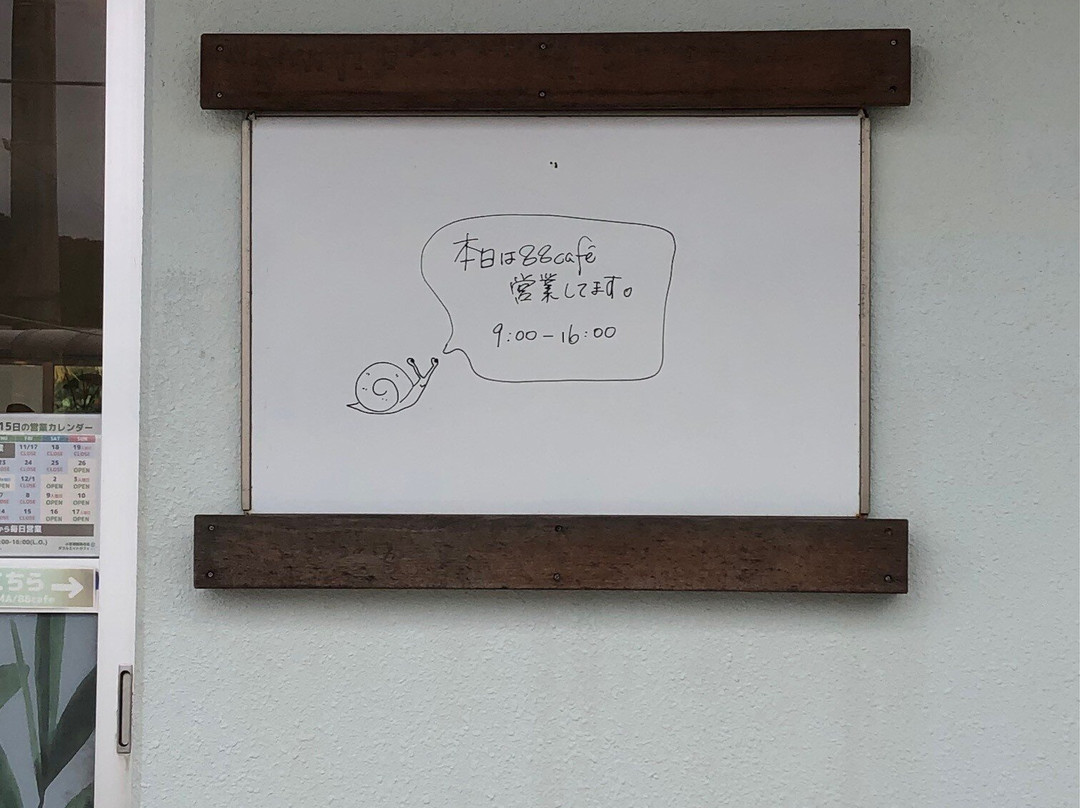 本日は88cafe
営業してます。
9:00-16:00
15日の営業カレンダー
FRI SAT SUN
11/17 18 19
CLOSE CLOSE CLOSE
24 25 26
CLOSE CLOSE OPEN
12/1 2 3
OPEN OPEN OPEN
8 9 10
CLOSE OPEN OPEN
15 16 17
CLOSE OPEN OPEN
から毎日営業
:00-16:00(L.O.)
こちら→
MA/88cafe